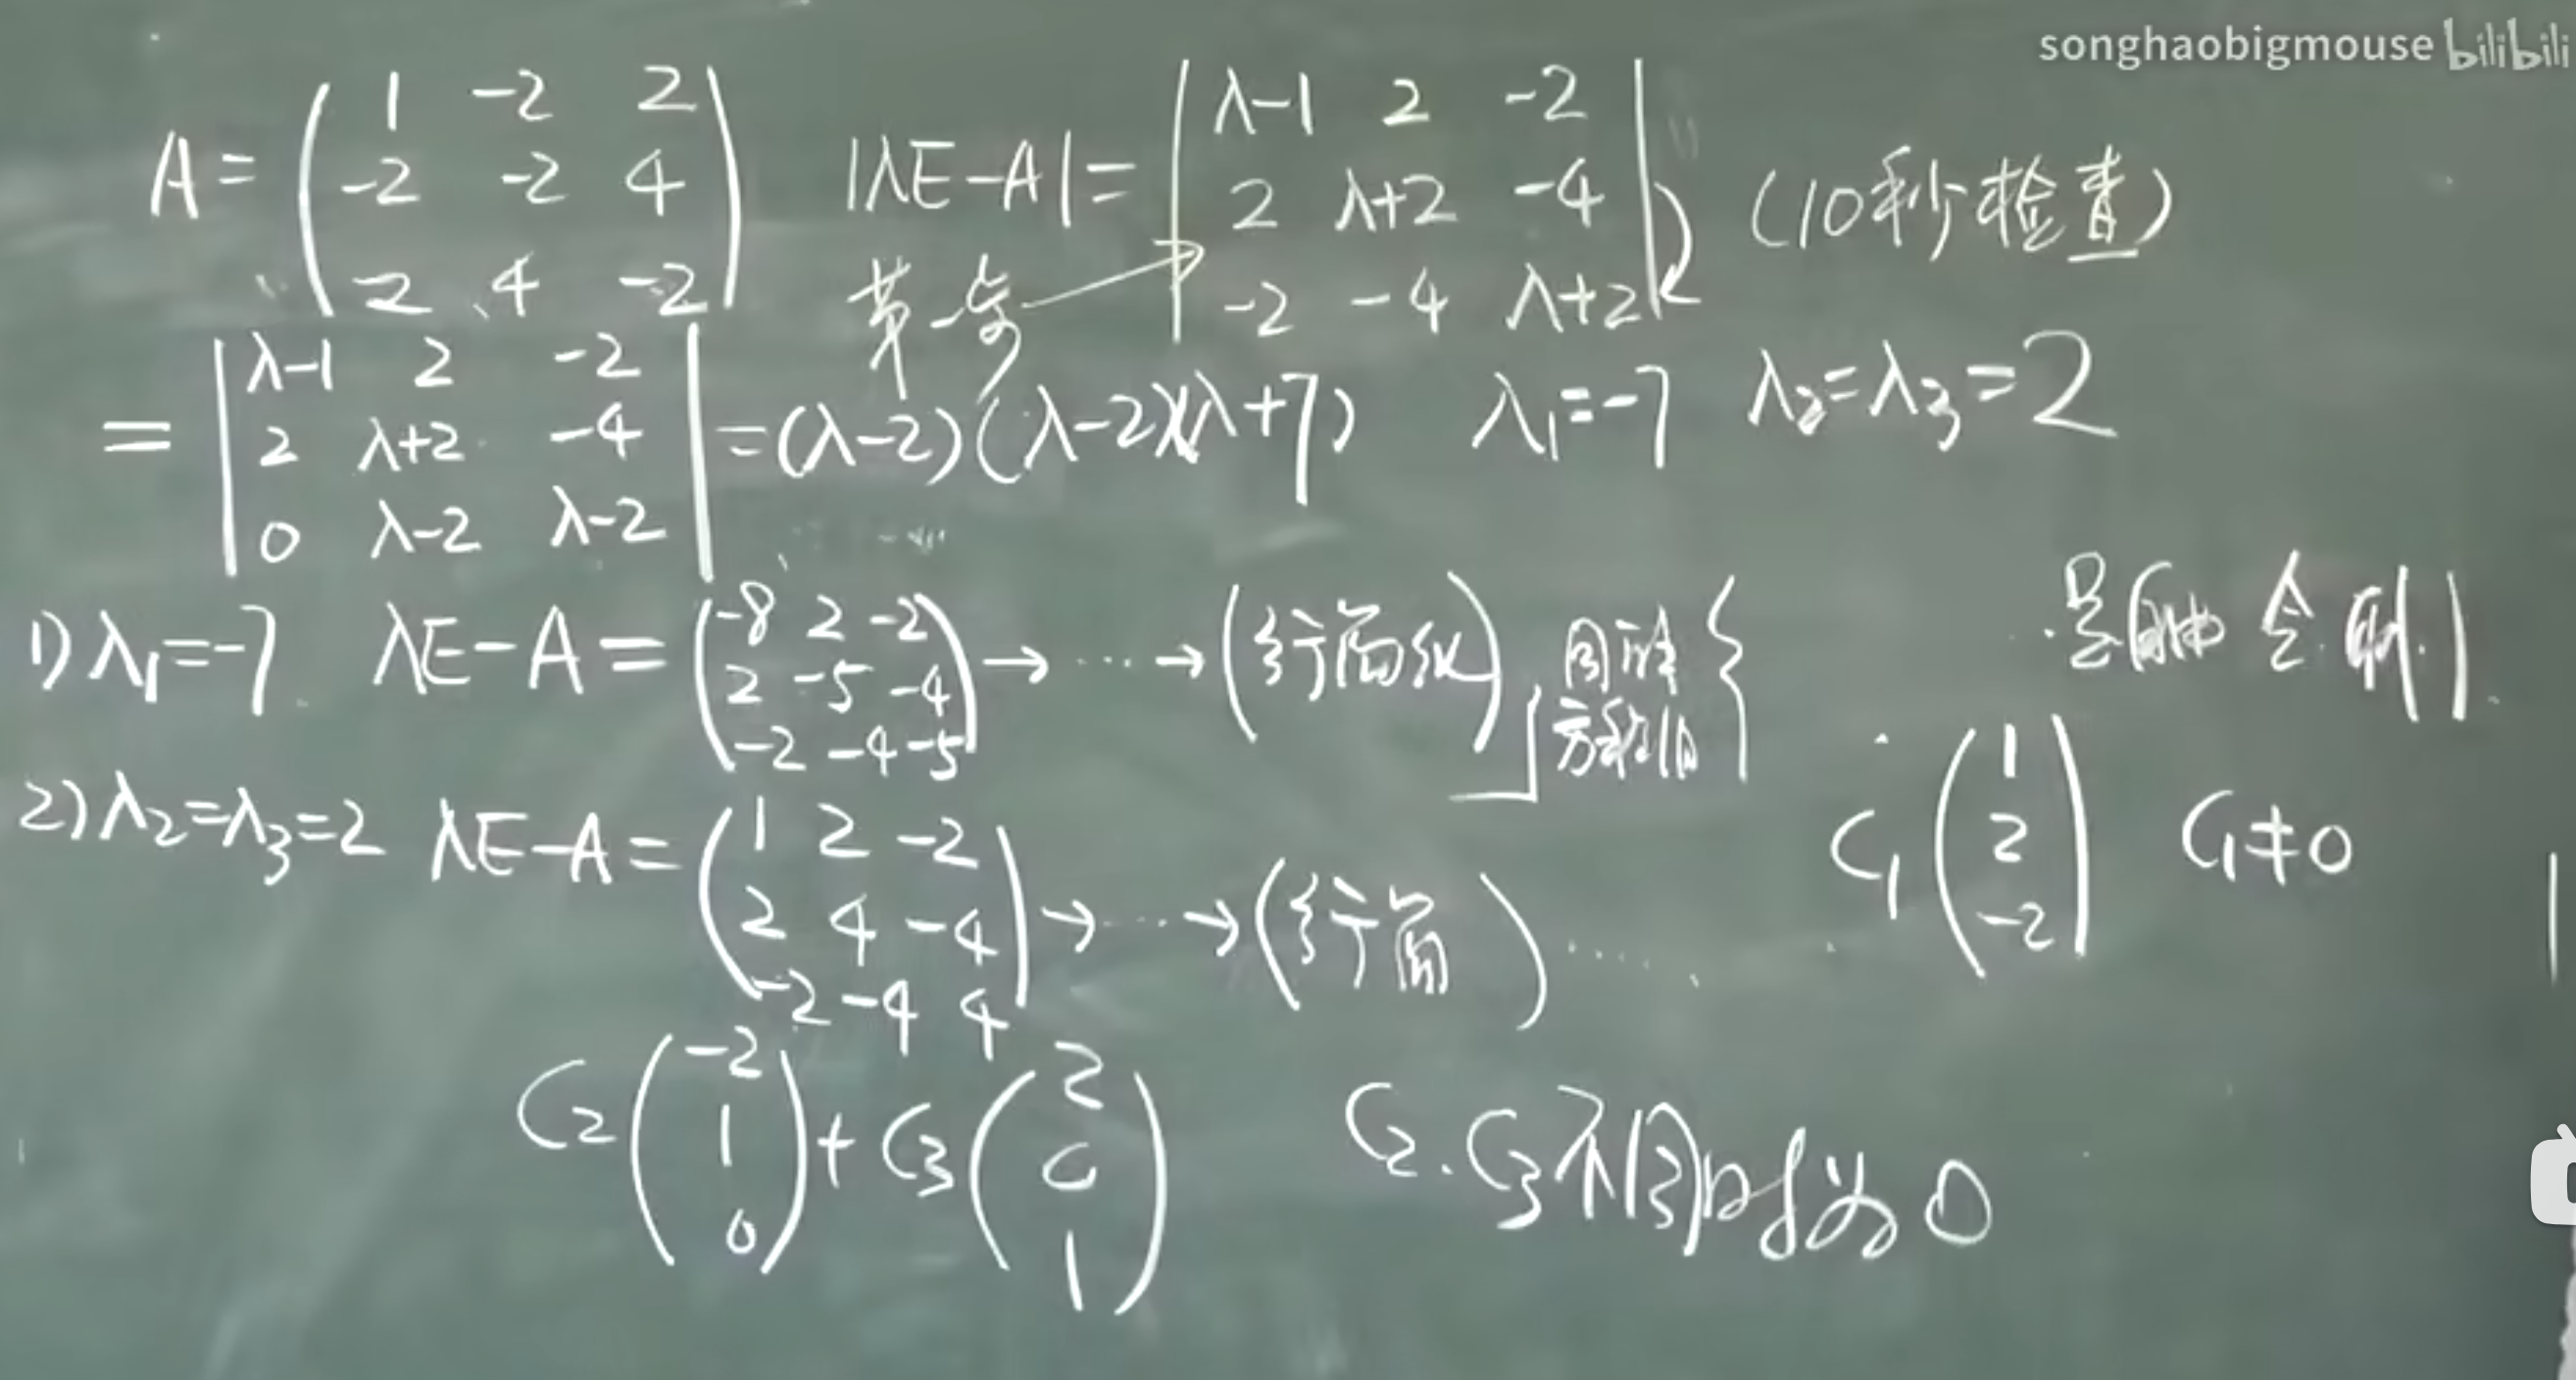 songhaobigmouse bilibili
A = ( 1 -2 2 |λE-A| = | λ-1 2 -2 |
-2 -2 4 2 λ+2 -4 (10秒检查)
2 4 -2 ) 第一步 -2 -4 λ+2
= | λ-1 2 -2
2 λ+2 -4
0 λ-2 λ-2 | = (λ-2)(λ-2)(λ+7) λ₁=-7 λ₂=λ₃=2
是自由 全取1
1) λ₁=-7 λE-A = ( -8 2 -2
2 -5 -4
-2 -4 -5 ) → ⋯ → (行简化) 同解方程组 {
C₁ ( 1 2 -2 ) C₁≠0
2) λ₂=λ₃=2 λE-A = ( 1 2 -2
2 4 -4
-2 -4 4 ) → ⋯ → (行简 ) ⋯
C₂ ( -2 1 0 ) + C₃ ( 2 0 1 ) C₂.C₃不同时为0